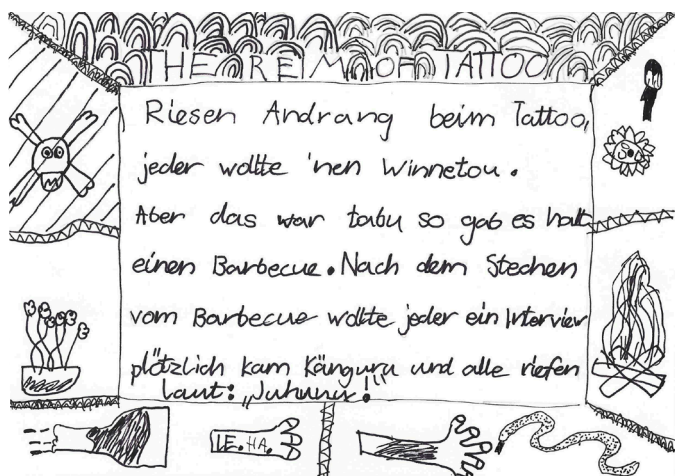 THE REIM OF TATTOO
Riesen Andrang beim Tattoo,
jeder wollte 'nen Winnetou.
Aber das war tabu so gab es halt
einen Barbecue. Nach dem Stechen
vom Barbecue wollte jeder ein Interview
plötzlich kam Känguru und alle riefen
laut: „Juhuuu!"
LE. HA.